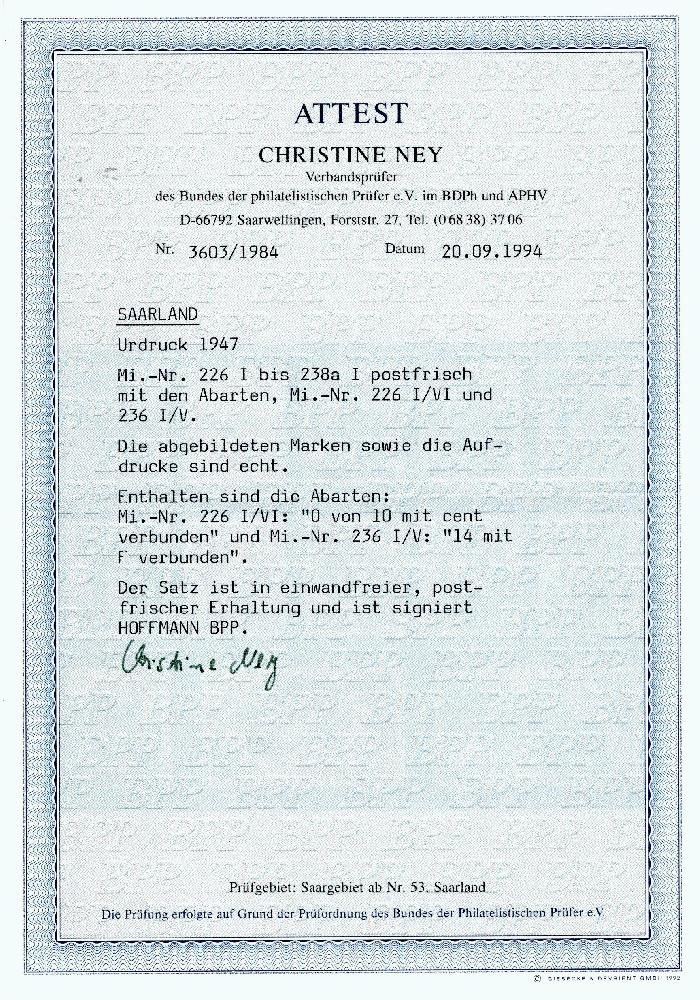 ATTEST
CHRISTINE NEY
Verbandsprüfer
des Bundes der philatelistischen Prüfer e.V. im BDPh und APHV
D-66792 Saarwellingen, Forststr. 27, Tel. (0 68 38) 37 06
Nr. 3603/1984 Datum 20.09.1994
SAARLAND
Urdruck 1947
Mi.-Nr. 226 I bis 238a I postfrisch
mit den Abarten, Mi.-Nr. 226 I/VI und
236 I/V.
Die abgebildeten Marken sowie die Auf-
drucke sind echt.
Enthalten sind die Abarten:
Mi.-Nr. 226 I/VI: "0 von 10 mit cent
verbunden" und Mi.-Nr. 236 I/V: "14 mit
F verbunden".
Der Satz ist in einwandfreier, post-
frischer Erhaltung und ist signiert
HOFFMANN BPP.
Christine Ney
Prüfgebiet: Saargebiet ab Nr. 53, Saarland
Die Prüfung erfolgte auf Grund der Prüfordnung des Bundes der Philatelistischen Prüfer e.V.
© GIESECKE & DEVRIENT GMBH 1992